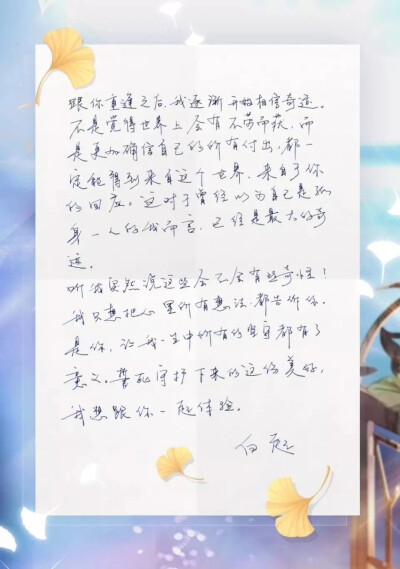 跟你重逢之后,我逐渐开始相信奇迹。
不是觉得世界上会有不劳而获,而
是更加确信自己的所有付出,都一
定能得到来自这个世界,来自于你
的回应。这对于曾经以为自己是孤
身一人的我而言,已经是最大的奇
迹。
听我突然说这些会不会有些奇怪!
我只想把心里所有想法,都告诉你。
是你,让我一生中所有的坚守都有了
意义。誓死守护下来的这份美好,
我想跟你一起体验。
白起